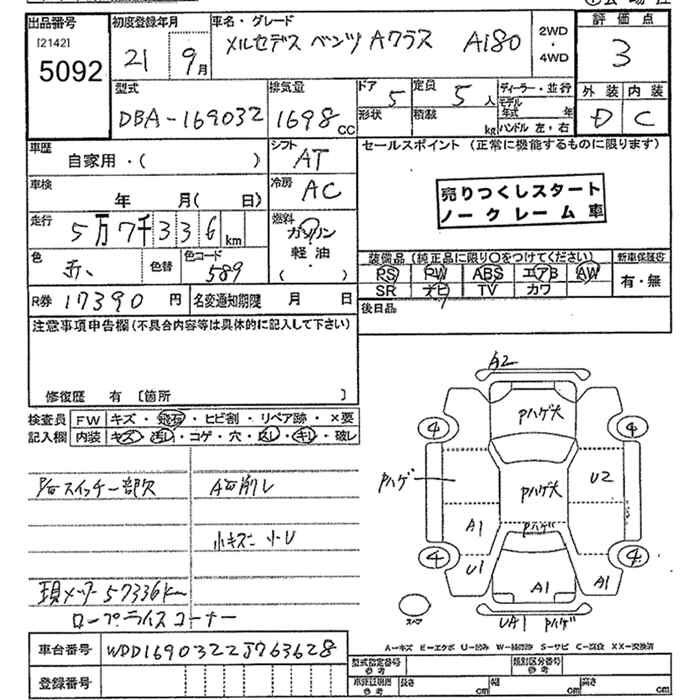 出品番号
[2142]
5092
初度登録年月
21 9月
車名・グレード
メルセデス ベンツ Aクラス A180
2WD
・
4WD
評価点
3
外装 内装
D C
型式
DBA-169032
排気量
1698CC
ドア 5
形状
定員 5人
積載 kg
ディーラー・並行
モデル年式 年
ハンドル 左・右
車歴
自家用・( )
シフト
AT
車検
年 月( 日)
冷房
AC
走行
5万7千336km
燃料
ガソリン
軽油
( )
色
赤
色替
色コード
589
R券 17390円
名変通知期限 月 日
セールスポイント (正常に機能するものに限ります)
売りつくしスタート
ノークレーム車
装備品(純正品に限り〇をつけてください)
PS PW ABS エアB AW
SR ナビ TV カワ
新車保証書
有・無
後日品
注意事項申告欄(不具合内容等は具体的に記入して下さい)
修復歴 有 [箇所 ]
検査員
記入欄
FW キズ・飛石・ヒビ割・リペア跡・×要
内装 キズ・汚レ・コゲ・穴・スレ・キレ・破レ
スイッチ一部欠
小キズ 小U
現メーター57336km
ロープライスコーナー
A2
Pハゲ大
4
4
Pハゲ
Pハゲ大
U2
A1
Pハゲ
4
4
U1
A1
A1
UA1 Pハゲ
スペア
A-キズ E-エクボ U-凹み W-補修跡 S-サビ C-腐食 XX-交換済
車台番号 WDD1690322J763628
登録番号
型式指定番号
参考
類別区分番号
参考
車検証明書
参考
長さ cm
幅 cm
高さ cm